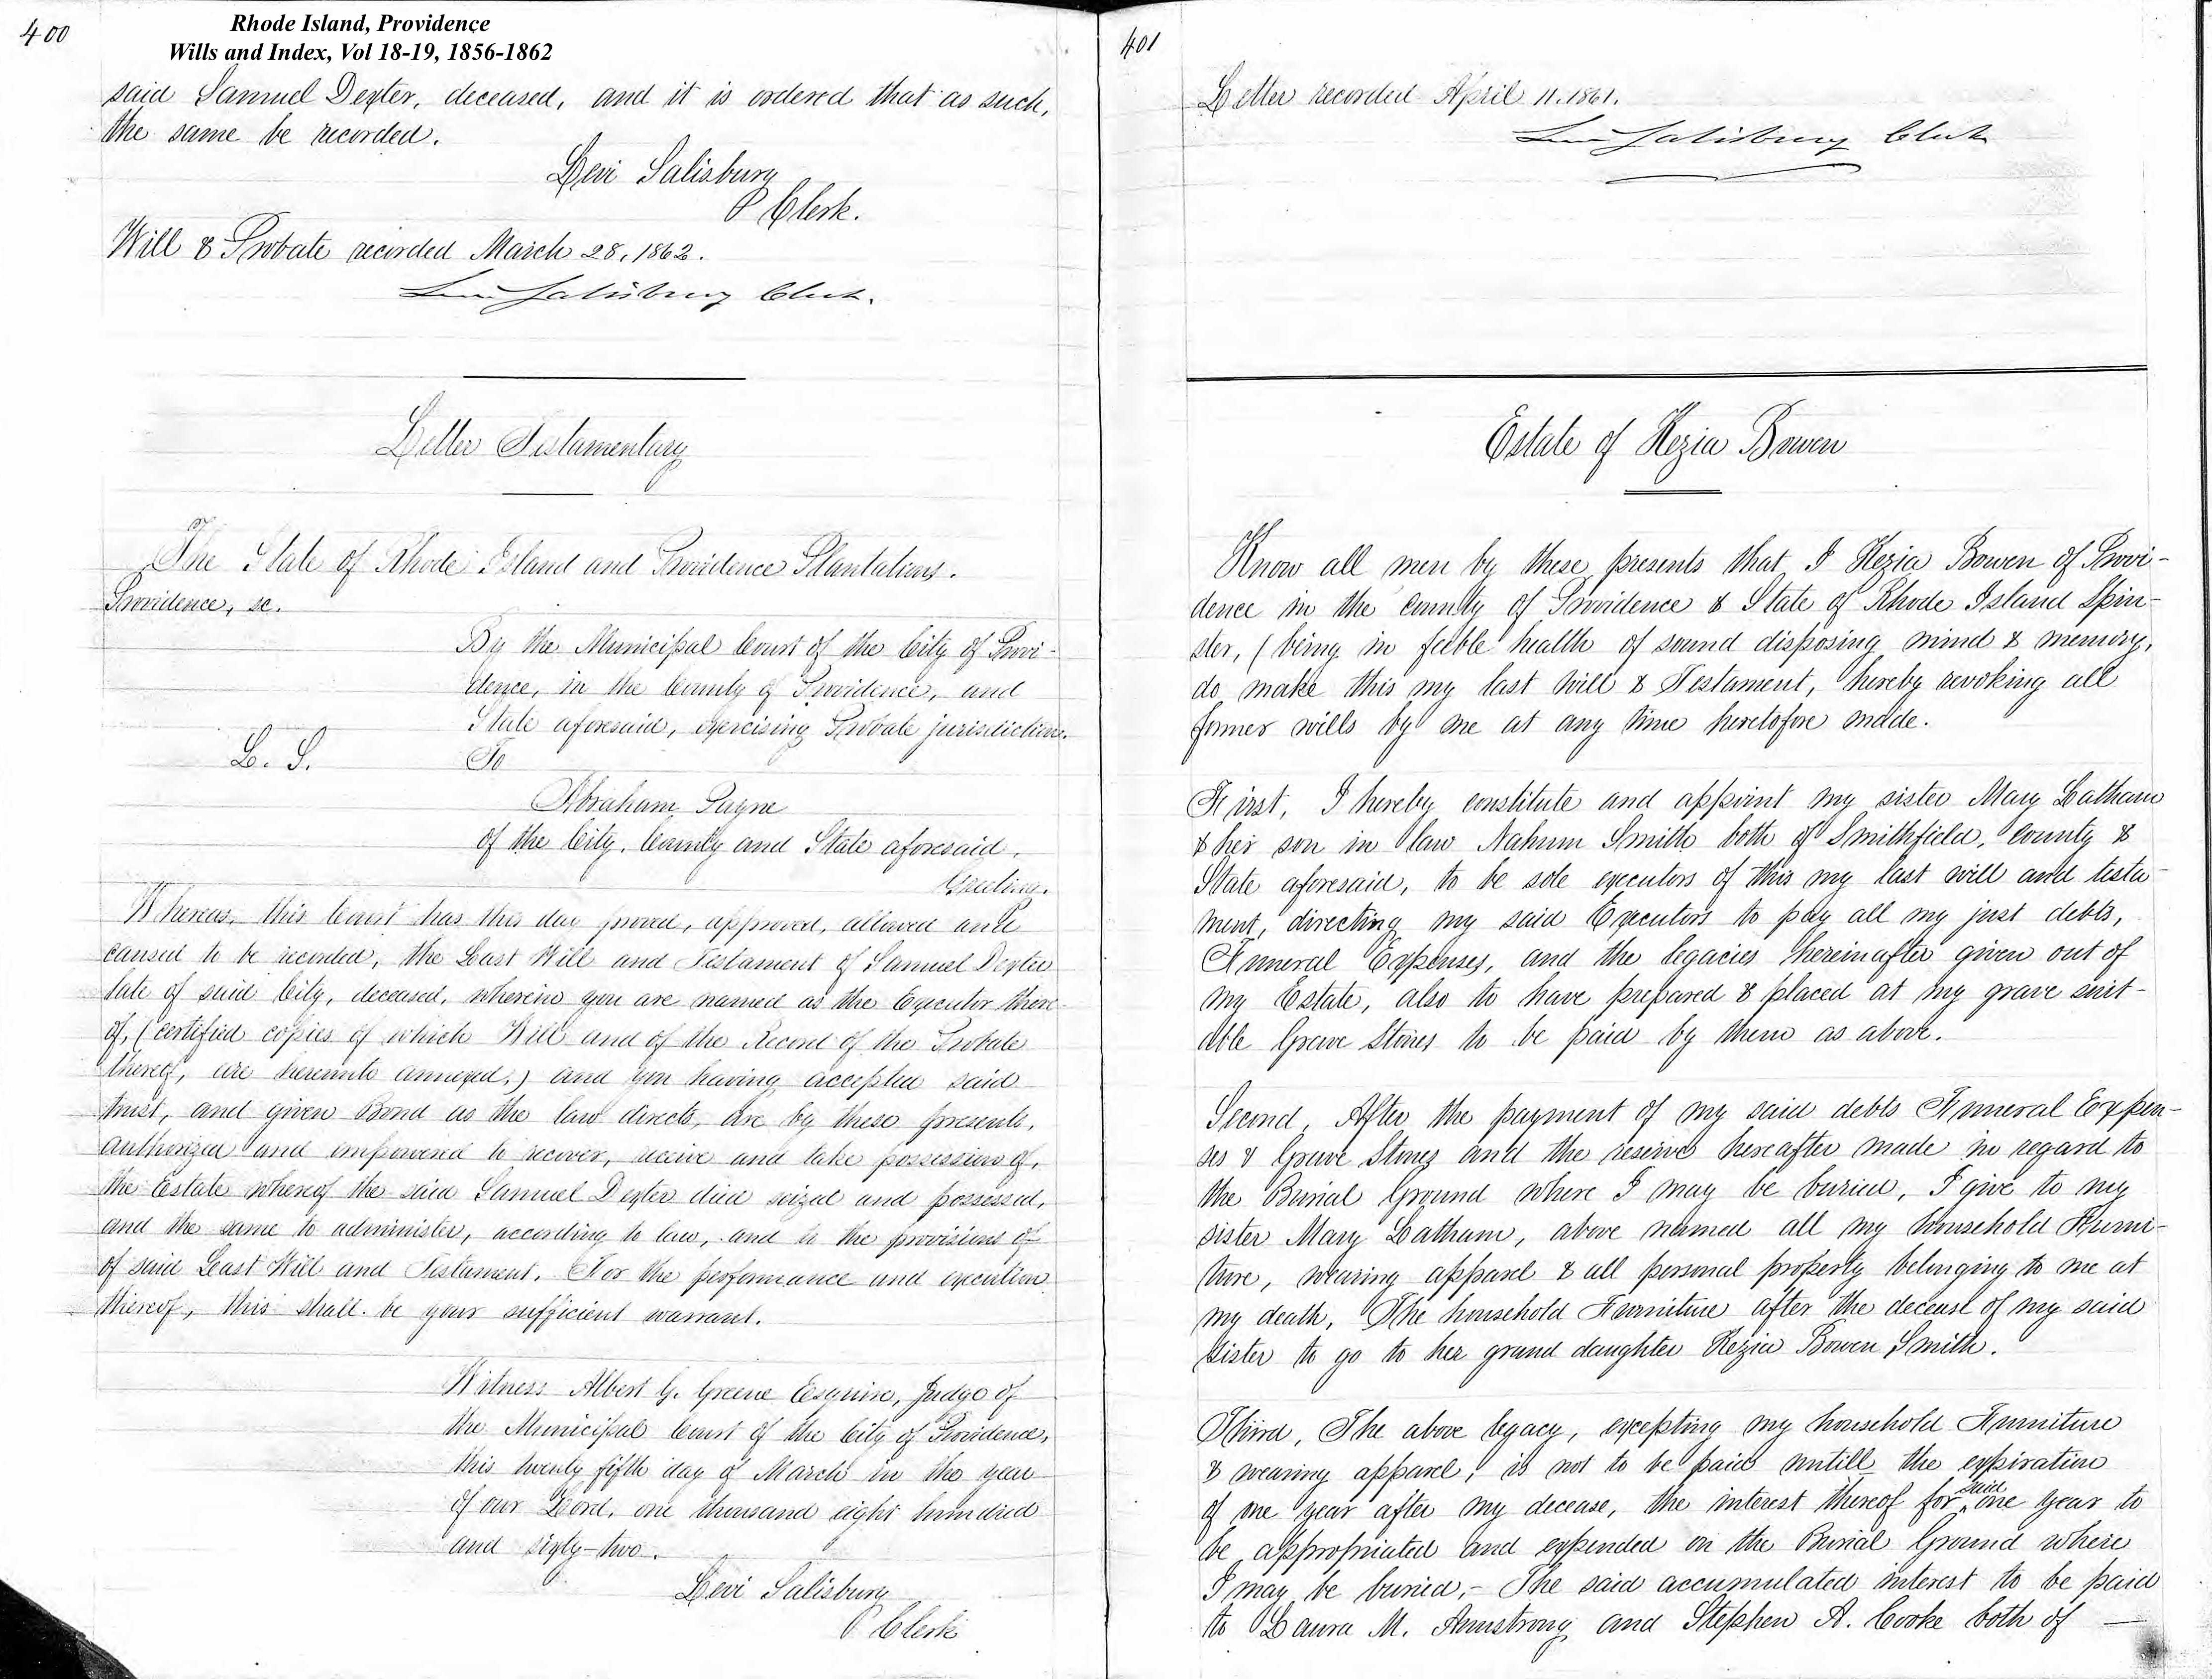 400
Rhode Island, Providence
Wills and Index, Vol 18-19, 1856-1862
said Samuel Dexter, deceased, and it is ordered that as such,
the same be recorded.
Levi Salisbury
Clerk.
Will & Probate recorded March 28, 1862.
Levi Salisbury Clerk.
Letter Testamentary
The State of Rhode Island and Providence Plantations.
Providence, sc.
By the Municipal Court of the City of Provi-
dence, in the County of Providence, and
State aforesaid, exercising Probate jurisdiction.
L. S. To
Abraham Payne
of the City, County and State aforesaid,
Greeting.
Whereas, this Court has this day proved, approved, allowed and
caused to be recorded, the Last Will and Testament of Samuel Dexter
late of said City, deceased, wherein you are named as the Executor there-
of, (certified copies of which Will and of the Record of the Probate
thereof, are hereunto annexed,) and you having accepted said
trust, and given Bond as the law directs, are by these presents,
authorized and empowered to recover, receive and take possession of,
the Estate whereof the said Samuel Dexter died seized and possessed,
and the same to administer, according to law, and to the provisions of
of said Last Will and Testament. For the performance and execution
thereof, this shall be your sufficient warrant.
Witness Albert G. Greene Esquire, Judge of
the Municipal Court of the City of Providence,
this twenty fifth day of March in the year
of our Lord, one thousand eight hundred
and sixty-two.
Levi Salisbury
Clerk
401
Letter recorded April 11. 1861.
Levi Salisbury Clerk
Estate of Kezia Bowen
Know all men by these presents that I Kezia Bowen of Provi-
dence in the County of Providence & State of Rhode Island Spin-
ster, (being in feeble health of sound disposing mind & memory,
do make this my last Will & Testament, hereby revoking all
former wills by me at any time heretofore made.
First, I hereby constitute and appoint my sister Mary Latham
& her son in law Nahum Smith both of Smithfield, County &
State aforesaid, to be sole executors of this my last will and testa-
ment, directing my said Executors to pay all my just debts,
Funeral Expenses, and the legacies hereinafter given out of
my Estate, also to have prepared & placed at my grave suit-
able Grave Stones to be paid by them as above.
Second, After the payment of my said debts Funeral Expen-
ses & Grave Stones and the reserve hereafter made in regard to
the Burial Ground where I may be buried, I give to my
sister Mary Latham, above named all my household Furni-
ture, wearing apparel & all personal property belonging to me at
my death, The household Furniture after the decease of my said
sister to go to her grand daughter Kezia Bowen Smith.
Third, The above legacy, excepting my household Furniture
& wearing apparel, is not to be paid untill the expiration
of one year after my decease, the interest thereof for said one year to
be appropriated and expended on the Burial Ground where
I may be buried,- The said accumulated interest to be paid
to Laura M. Armstrong and Stephen A. Cooke both of —